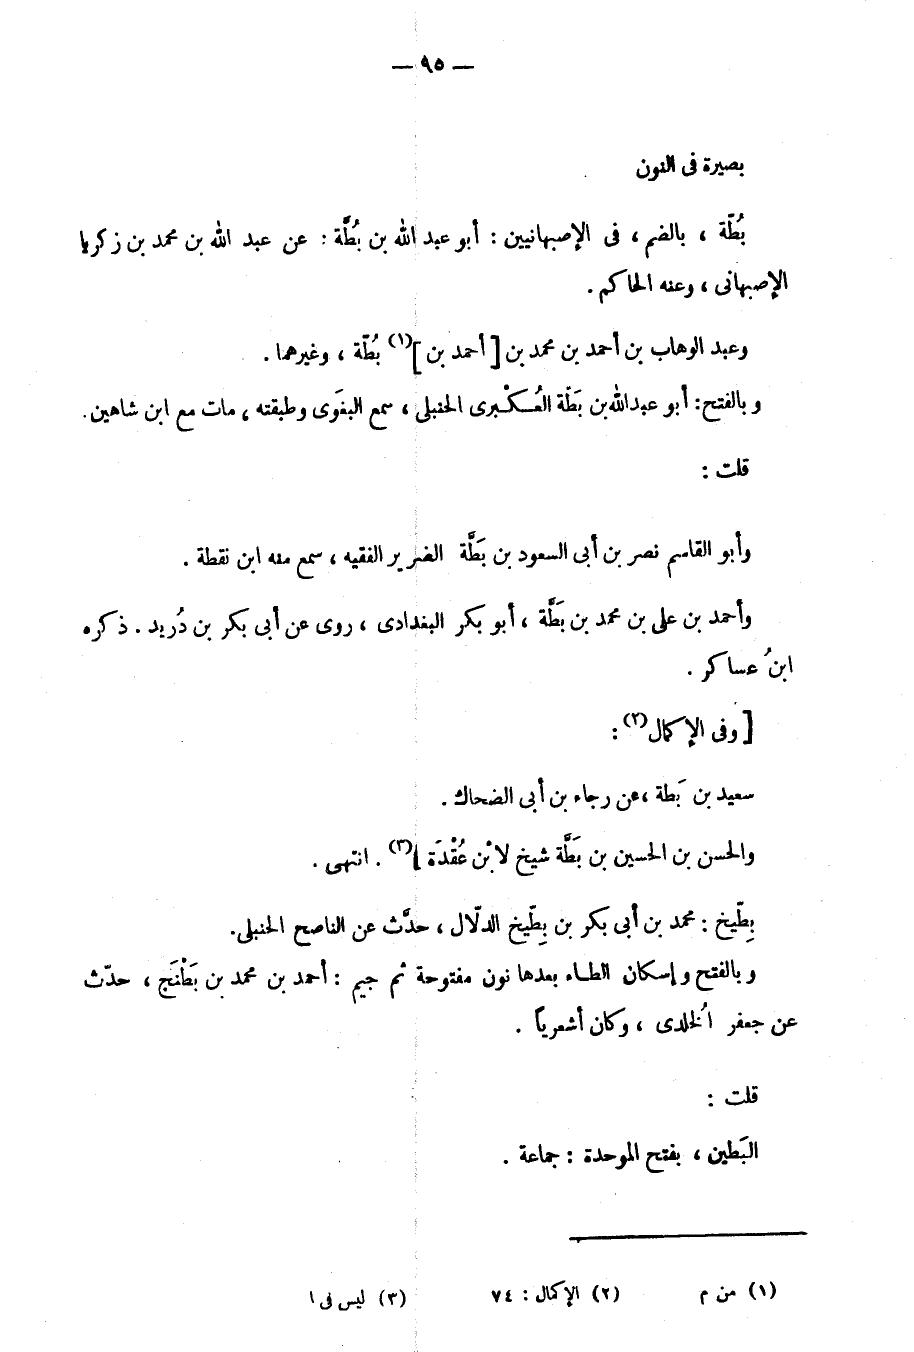 — ٩٥ —
بصيرة فى النون
بُطّة ، بالضم ، فى الإصبهانيين : أبو عبد الله بن بُطَّة : عن عبد الله بن محمد بن زكريا
الإصبهانى ، وعنه الحاكم .
وعبد الوهاب بن أحمد بن محمد بن [ أحمد بن ](١) بُطّة ، وغيرهما .
وبالفتح : أبو عبدالله بن بَطّة العُـكْبرى الحنبلى ، سمع البغَوى وطبقته ، مات مع ابن شاهين .
قلت :
وأبو القاسم نصر بن أبى السعود بن بَطَّة الضرير الفقيه ، سمع منه ابن نقطة .
وأحمد بن على بن محمد بن بَطَّة ، أبو بكر البغدادى ، روى عن أبى بكر بن دُريد . ذكره
ابنُ عساكر .
[ وفى الإكمال(٢) :
سعيد بن بَطة ، عن رجاء بن أبى الضحاك .
والحسن بن الحسين بن بَطَّة شيخ لابْن عُقْدَة ](٣) . انتهى .
بِطِّيخ : محمد بن أبى بكر بن بِطِّيخ الدلّال ، حدَّث عن الناصح الحنبلى .
وبالفتح وإسكان الطاء بعدها نون مفتوحة ثم جيم : أحمد بن محمد بن بَطْنَج ، حدّث
عن جعفر الخُلدى ، وكان أشعرياً .
قلت :
البَطين ، بفتح الموحدة : جماعة .
(١) من م (٢) الإكمال : ٧٤ (٣) ليس فى ا